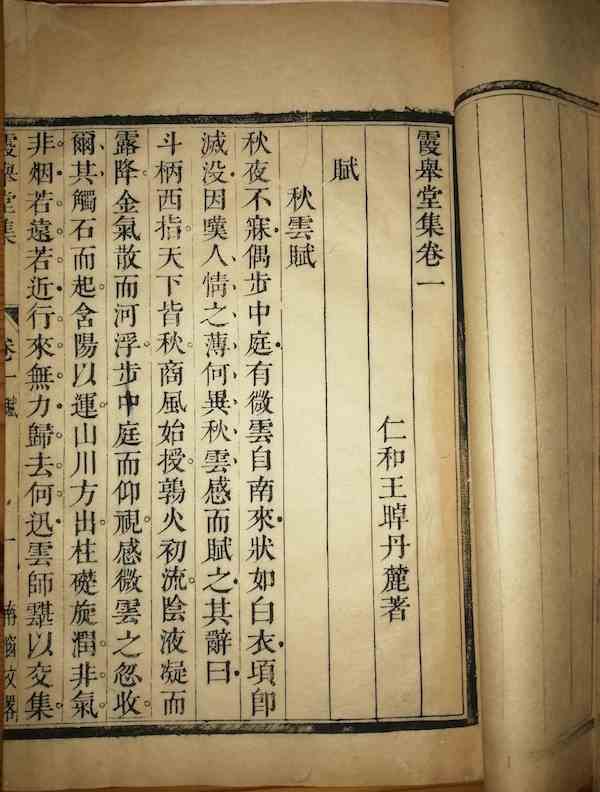 霞舉堂集卷一
仁和王晫丹麓著
賦
秋雲賦
秋夜不寐偶步中庭有微雲自南來狀如白衣頃卽
滅没因嘆人情之薄何異秋雲感而賦之其辭曰
斗柄西指天下皆秋商風始授鶉火初流陰液凝而
露降金氣散而河浮步中庭而仰視感微雲之忽收
爾其觸石而起含陽以運山川方出柱礎旋潤非氣
非烟若遠若近行來無力歸去何迅雲師驆以交集
霞舉堂集
卷一 賦
一